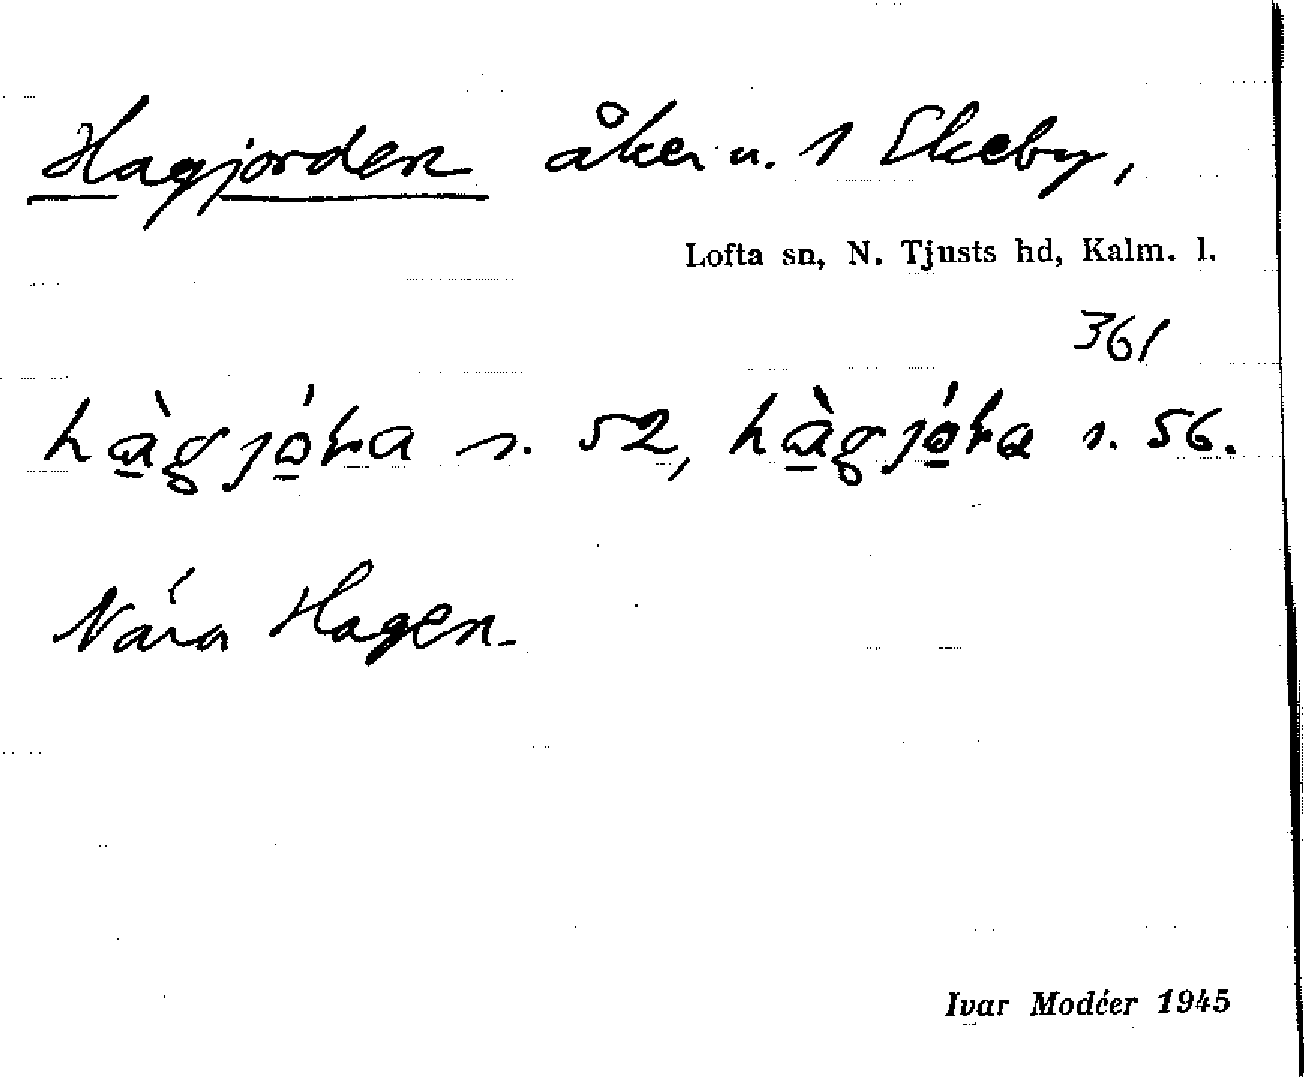 Hagjorden åker n. 1 Ekeby,
Lofta sn, N. Tjusts hd, Kalm. l.
361
s. 52, s. 56.
Nära Hagen.
Ivar Modéer 1945